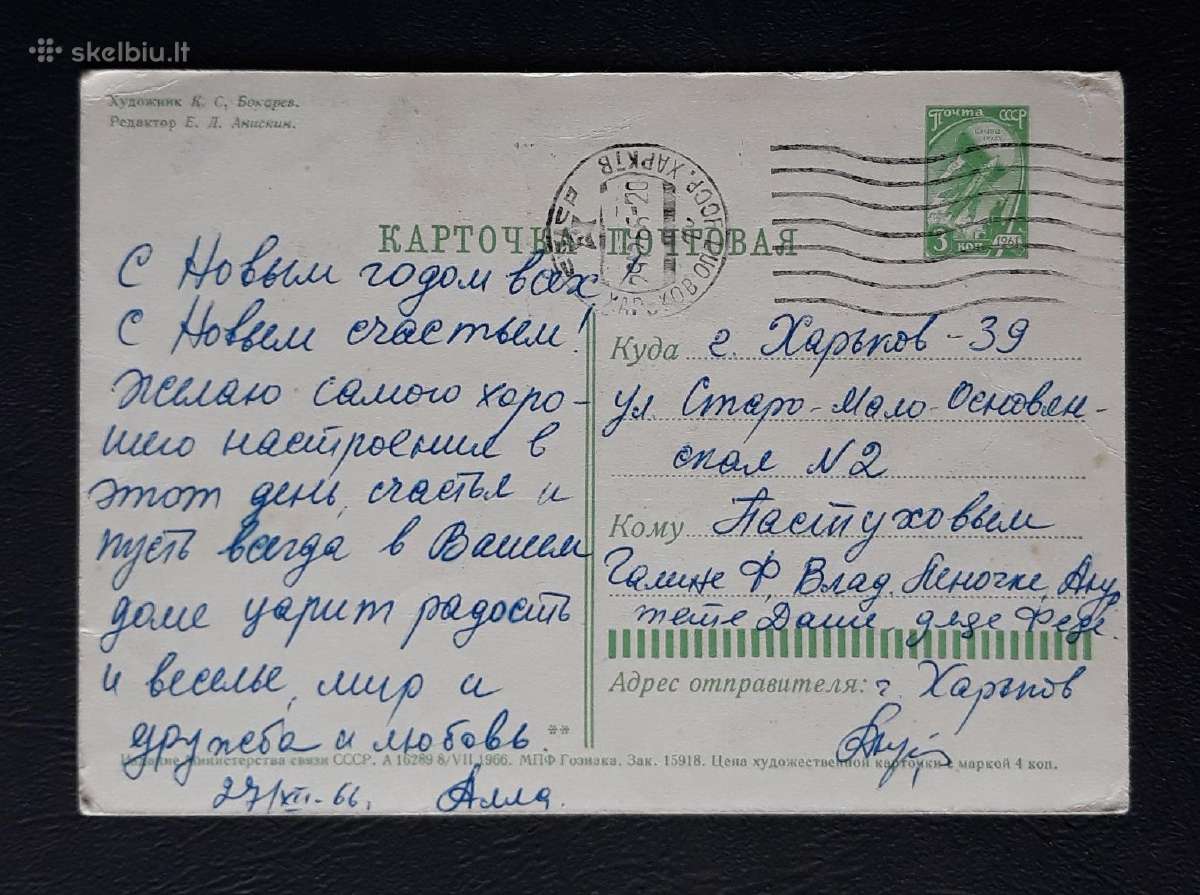 skelbiu.lt
Художник К. С. Бокарев.
Редактор Е. Д. Анискин.
Почта СССР
3 коп
1961
КАРТОЧКА ПОЧТОВАЯ
С Новым годом всех,
С Новым счастьем!
Желаю самого хоро-
шего настроения в
этот день, счастья и
пусть всегда в Вашем
доме царит радость
и веселье, мир и
дружба и любовь.
27/XII-66. Алла.
Куда г. Харьков-39
ул. Старо-Мало-Основян-
ская N2
Кому Пастуховым
Галине Ф, Влад. Леночке,
Даше, деде Феде.
Адрес отправителя: г. Харьков
**
Издание Министерства связи СССР. А 16289 8/VII 1966. МПФ Гознака. Зак. 15918. Цена художественной карточки с маркой 4 коп.